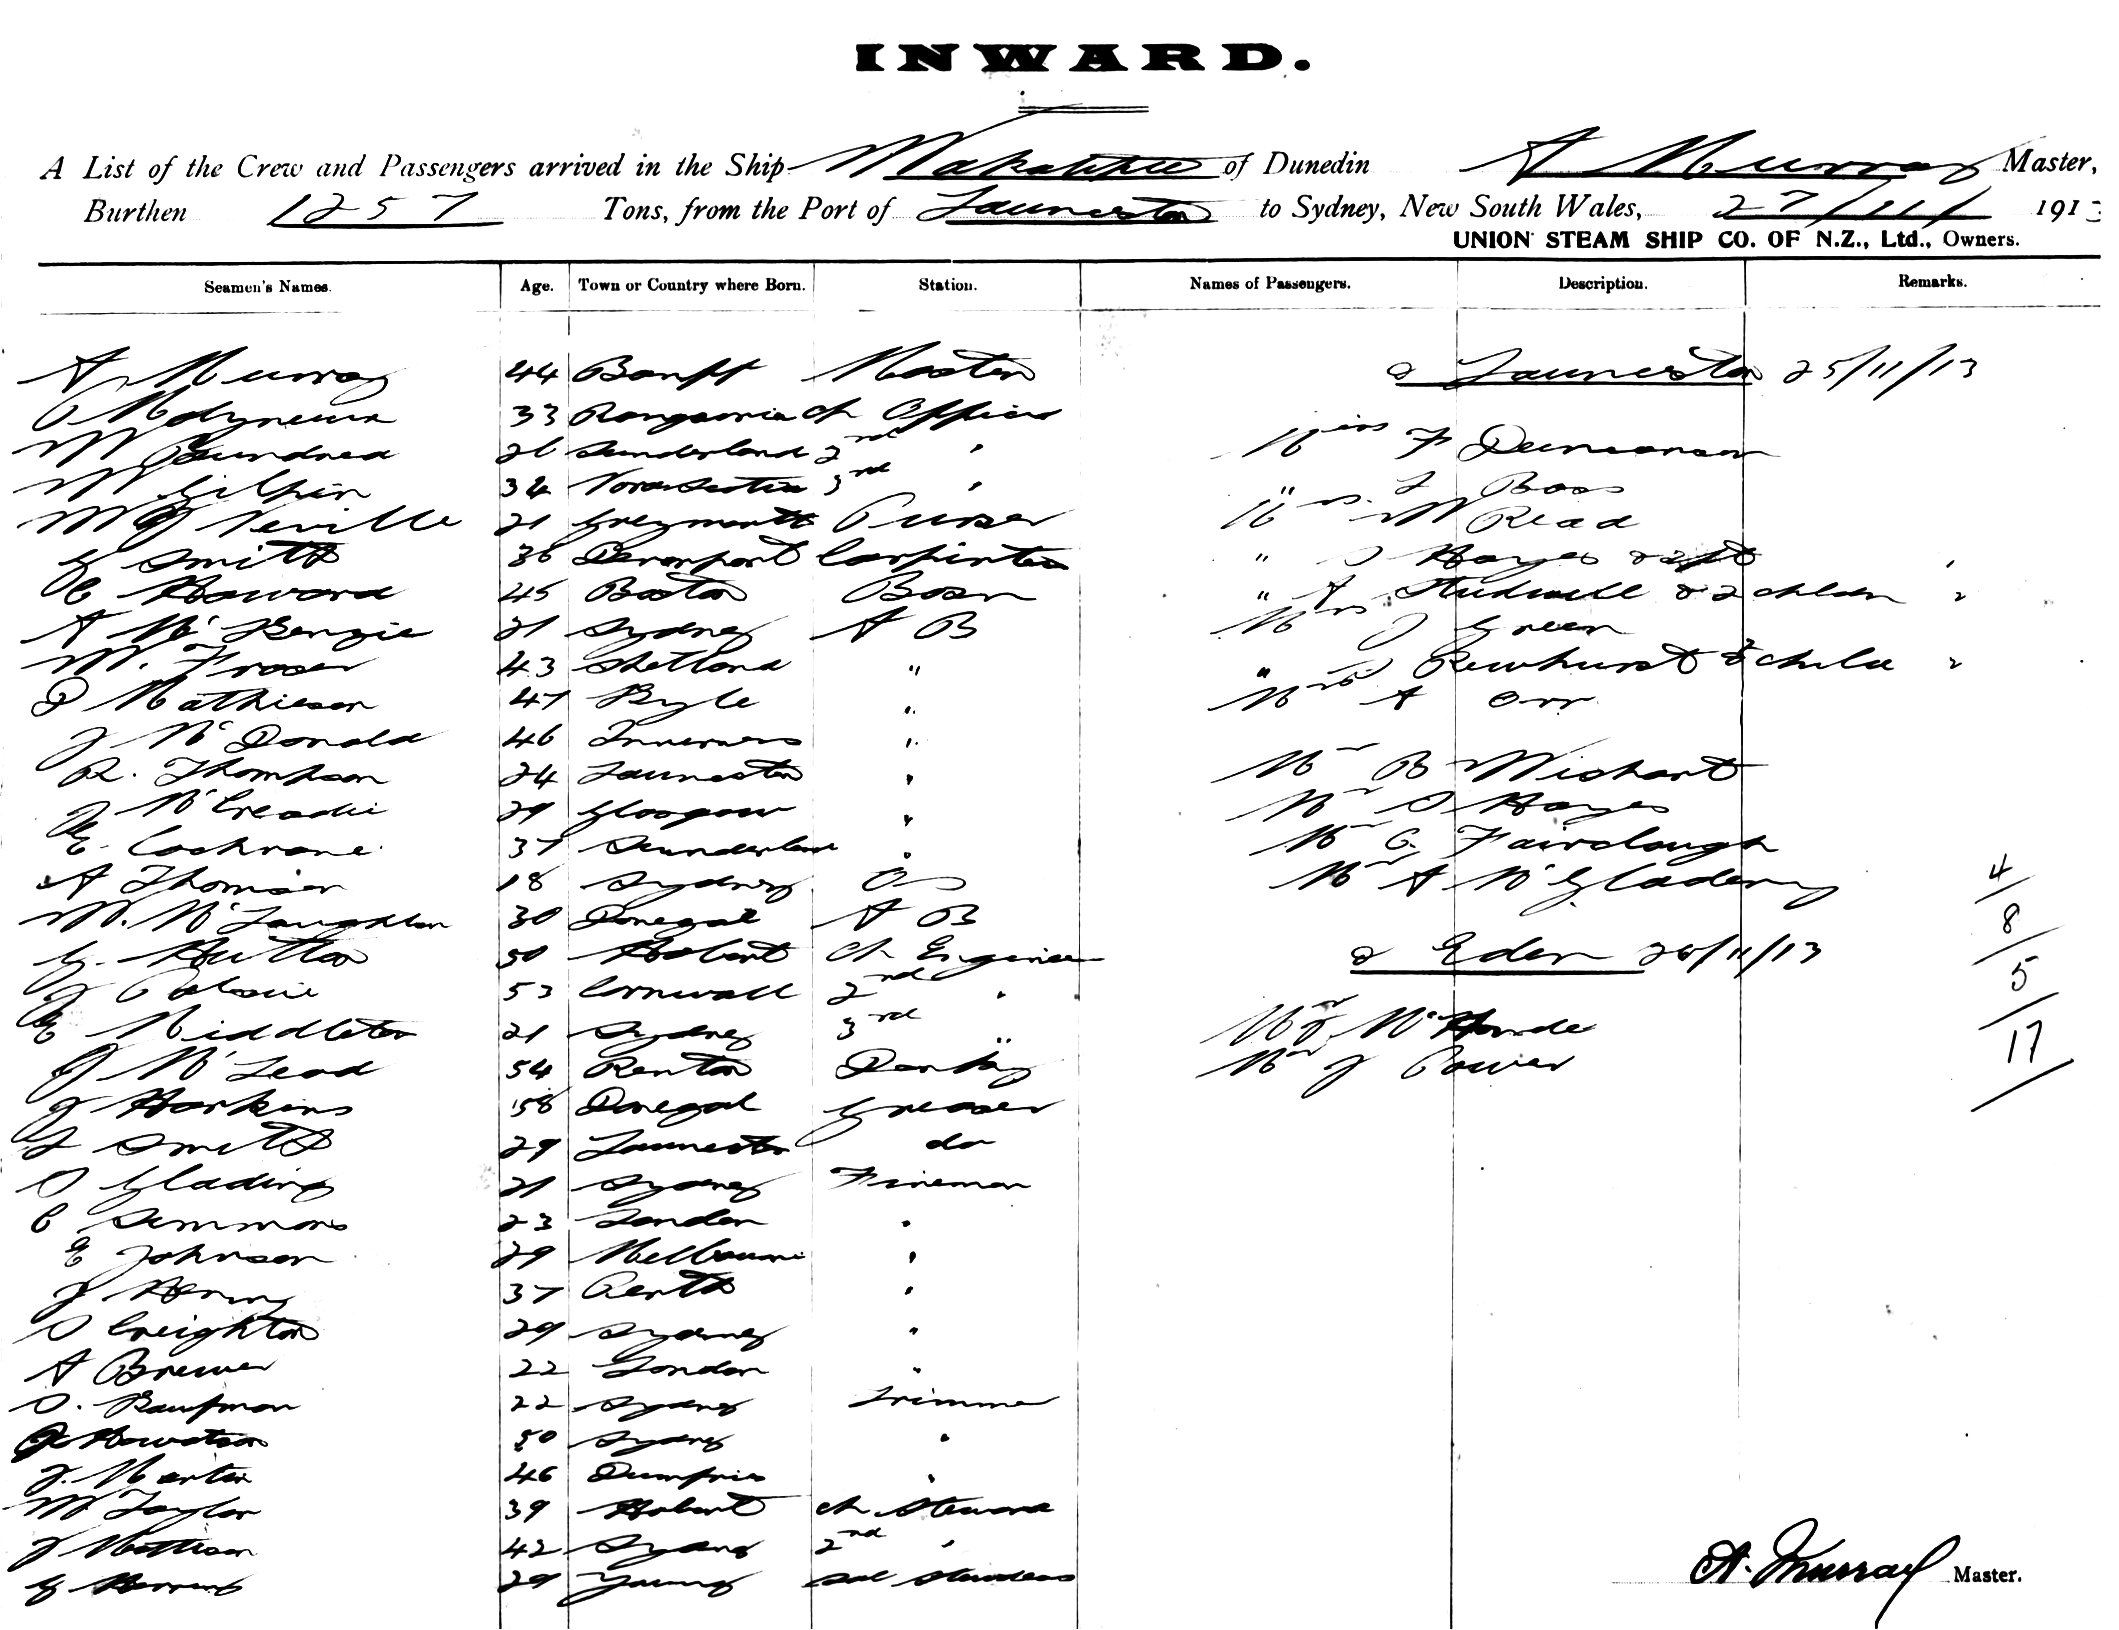 INWARD.
A List of the Crew and Passengers arrived in the Ship of Dunedin A Murray Master,
Burthen 1257 Tons, from the Port of Launceston to Sydney, New South Wales, 27/11/ 1913
UNION STEAM SHIP CO. OF N.Z., Ltd., Owners.
Seamen's Names. Age. Town or Country where Born. Station. Names of Passengers. Description. Remarks.
A Murray 44 Banff Master
Molyneux 33 Rangiora Ch Officer
W 26 Sunderland 2nd "
W Gilpin 34 Nova Scotia 3rd "
W G Neville 21 Greymouth Purser
G Smith 36 Devonport Carpenter
C Howard 45 Boston Bosn
A McKenzie 21 Sydney A B
W. Fraser 43 Shetland "
D Mathieson 47 Kyle "
J McDonald 46 Inverness "
R. Thompson 24 Launceston "
J McCreadie 29 Glasgow "
E. Cochrane 37 Sunderland "
A Thomson 18 Sydney OS
W. McLaughlan 30 Donegal A B
G. Hutton 50 Hobart Ch Engineer
J 53 Cornwall 2nd "
E Middleton 21 Sydney 3rd "
J McLeod 54 Renton Donkey
J Harkins 58 Donegal Greaser
L Smith 29 Launceston do
D Glading 21 Sydney Fireman
C Simmons 23 London "
E Johnson 29 Melbourne "
J Henry 37 Perth "
D Creighton 29 Sydney "
A Brewer 22 London "
D. Kaufman 22 Sydney Trimmer
J Howatson 50 Sydney "
J. Martin 46 Dumfries "
W Taylor 39 Hobart Ch Steward
J Mattison 42 Sydney 2nd "
G 29 Young Sal Stewardess
a Launceston 25/11/13
Miss F Duncanson
" L Boss
Mrs. W Read
" Hayes &
" A Studwell & 2 children "
Mrs J Green
" Dewhurst & child "
Mrs A Orr
Mr B Wishart
Mr D Hayes
Mr C. Fairclough
Mr A McGladery
a Eden 26/11/13
Mr J McHarde
Mr J Power
4
8
5
17
A. Murray Master.